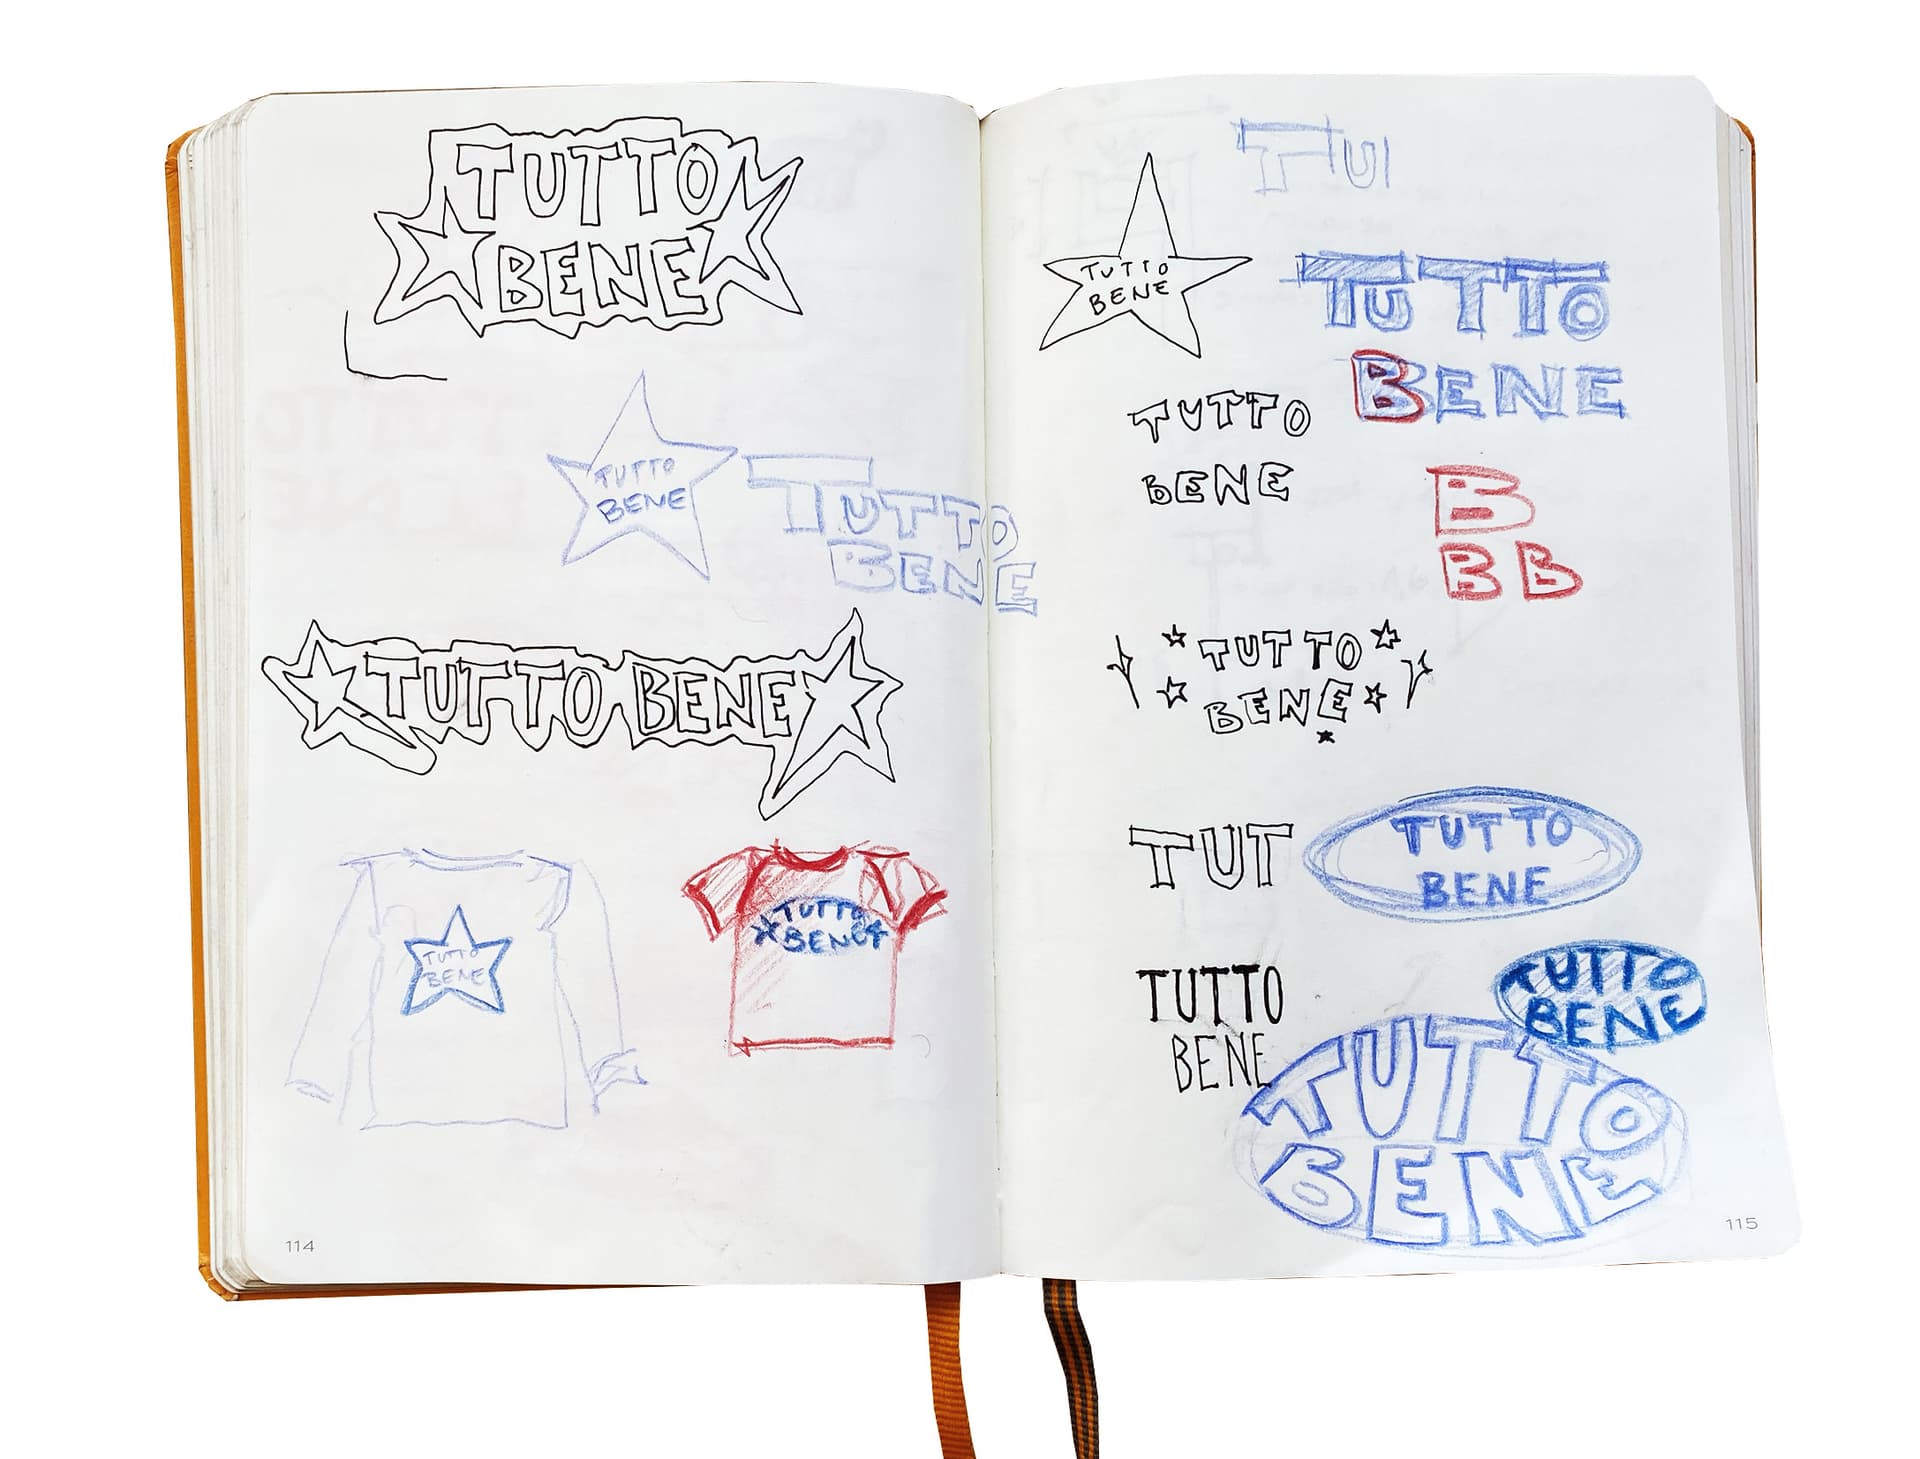 TUTTO
BENE
TUTTO
BENE
TUTTO
BENE
TUTTO BENE
TUTTO
BENE
TUTTO
BENE
114
TU
TUTTO
BENE
TUTTO
BENE
TUTTO
BENE
B
B B
TUTTO
BENE
TUT
TUTTO
BENE
TUTTO
BENE
TUTTO
BENE
TUTTO
BENE
115